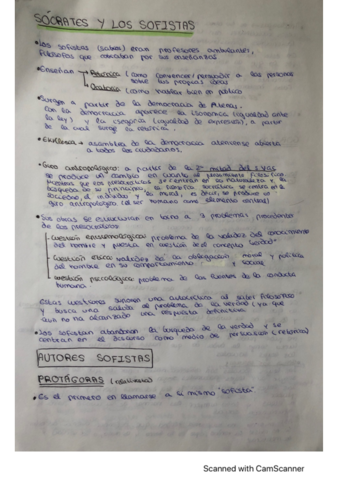 SÓCRATES Y LOS SOFISTAS
• Los sofistas (sabios) eran profesores ambulantes,
filósofos que cobraban por sus enseñanzas
• Enseñan Retórica (como convencer/persuadir a las personas
sobre las propias ideas)
Oratoria (como hablar bien en público)
• Surgen a partir de la democracia de Atenas.
Con la democracia aparece la isonomía (igualdad ante
la ley) y la isegoría (igualdad de expresión), a partir
de la cual surge la
• Ekklesia → asamblea de la democracia ateniense abierta
a todos los ciudadanos.
• Giro antropológico: a partir de la 2ª mitad del s. V a.C
se produce un cambio en cuanto al pensamiento filosófico.
sociedad, el individuo y la moral, es decir, se produce un
giro antropológico (el ser humano como elemento central)
• Sus obras se estructuran en torno a 3 problemas procedentes
de los presocráticos:
- Cuestión epistemológica: problema de la validez del conocimiento
del hombre y puesta en cuestión del concepto "verdad"
- Cuestión ética: validez de la obligación moral y política
del hombre en su comportamiento y social
- Cuestión psicológica: problema de las fuentes de la conducta
humana.
Estas cuestiones suponen una autocrítica al saber filosófico
y busca una salida al problema de la verdad (ya que
aún no ha alcanzado una respuesta definitiva
• Los sofistas abandonan la búsqueda de la verdad y se
centran en el discurso como medio de persuasión (retórica)
AUTORES SOFISTAS
PROTÁGORAS (relativismo)
• Es el primero en llamarse a sí mismo "sofista"
Scanned with CamScanner